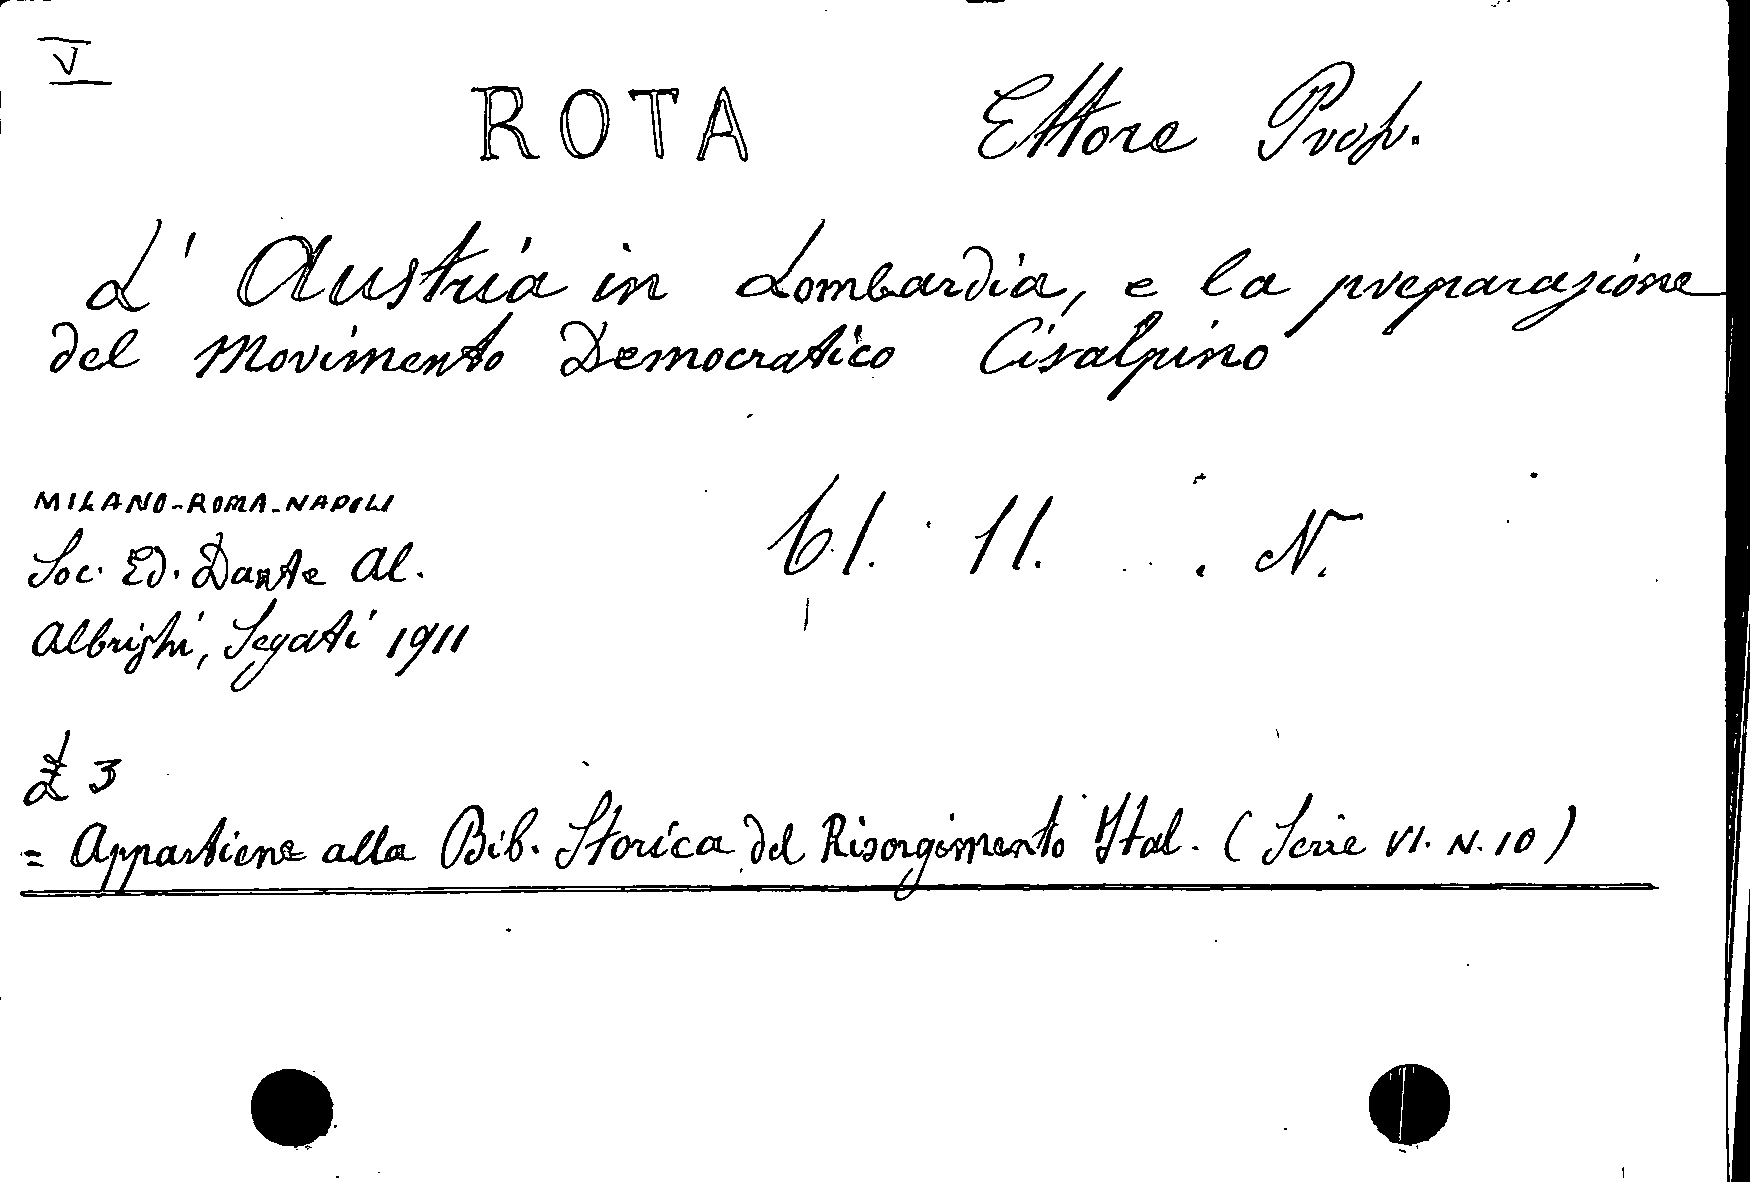 V
ROTA Ettore Prof.
L' Austria in Lombardia, e la preparazione
del Movimento Democratico Cisalpino
MILANO-ROMA-NAPOLI
Soc. Ed. Dante Al.
Albrighi, Segati 1911
61. 11. N.
£ 3
= Appartiene alla Bib. Storica del Risorgimento Ital. (Serie VI. N. 10)